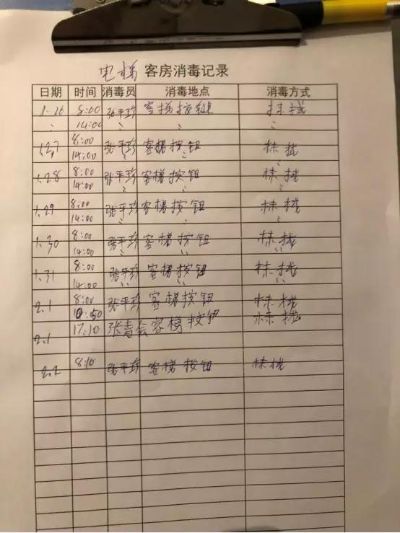 电梯 客房消毒记录
日期 时间 消毒员 消毒地点 消毒方式
8:00 客梯按钮
14:00
1.27 8:00 张平 客梯按钮 抹拢
14:00
1.28 8:00 张平 客梯按钮 抹拢
14:00
1.29 8:00 张平 客梯按钮 抹拢
14:00
1.30 8:00 张平 客梯按钮 抹拢
14:00
1.31 8:00 张平 客梯按钮 抹拢
14:00
2.1 8:00 张平 客梯按钮 抹拢
2.1 17:10 客梯按钮 抹拢
2.2 8:10 张平 客梯按钮 抹拢